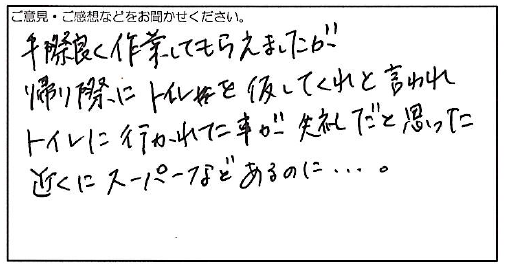 ご意見・ご感想などをお聞かせください。
手際良く作業してもらえましたが
帰り際にトイレを仮してくれと言われ
トイレに行かれた事が失礼だと思った
近くにスーパーなどあるのに・・・。